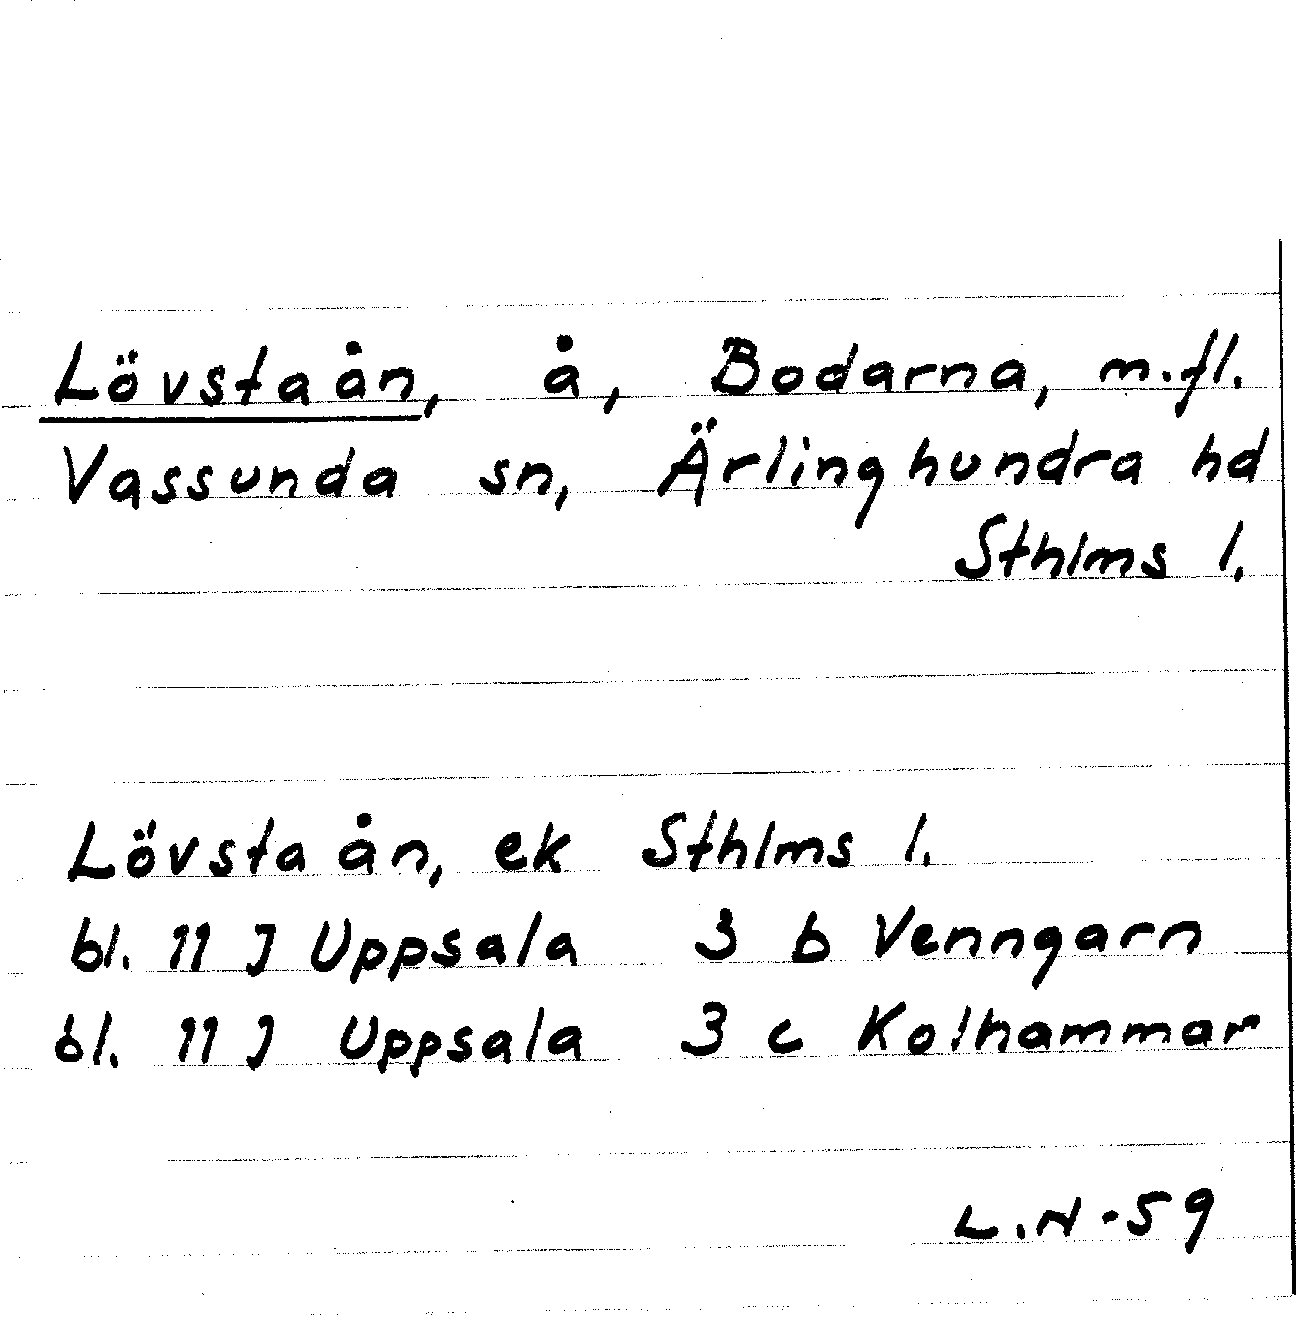 Lövstaån, å, Bodarna, m.fl.
Vassunda sn, Ärlinghundra hd
Sthlms l.
Lövstaån, ek Sthlms l.
bl. 11 J Uppsala 3 b Venngarn
bl. 11 J Uppsala 3 c Kolhammar
L.N-59